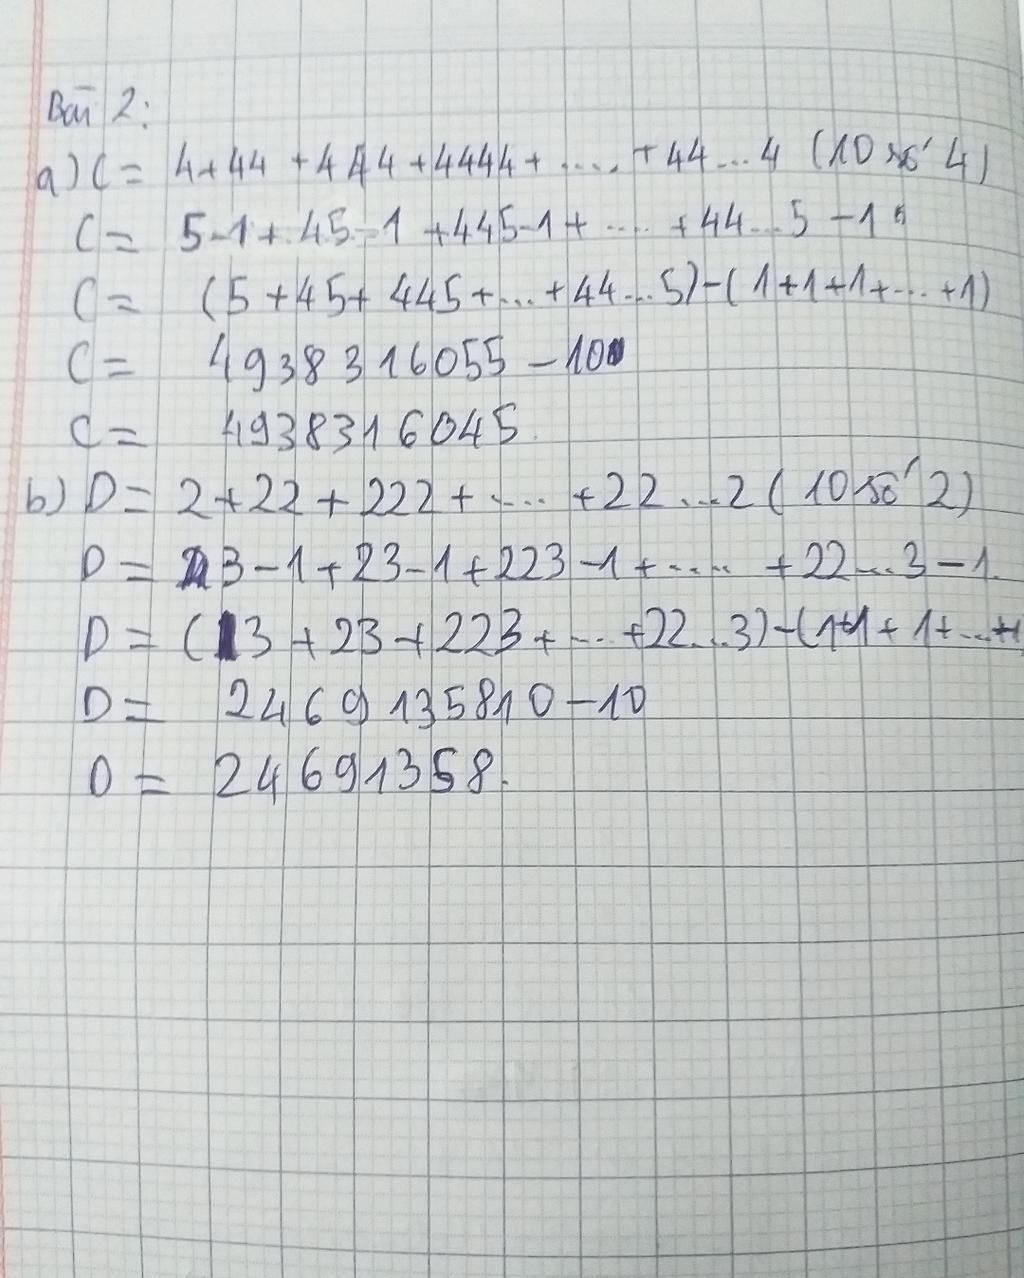 Bài 2:
a) C = 4+44+444+4444+.....+44...4 (10 số 4)
C = 5-1+45-1+445-1+.....+44...5-1
C = (5+45+445+...+44...5)-(1+1+1+...+1)
C = 4938316055-10
C = 4938316045.
b) D = 2+22+222+.....+22...2 (10 số 2)
D = 3-1+23-1+223-1+.....+22...3-1.
D = (3+23+223+...+22...3)-(1+1+1+...+1
D = 2469135810-10
D = 24691358.